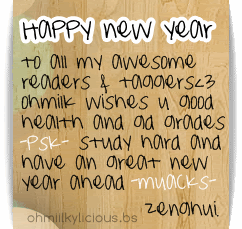 Happy new year
to all my awesome
readers & taggers<3
ohmilk wishes u good
health and gd grades
-psk- study hard and
have an great new
year ahead -muacks-
zenghui
ohmiilkylicious.bs